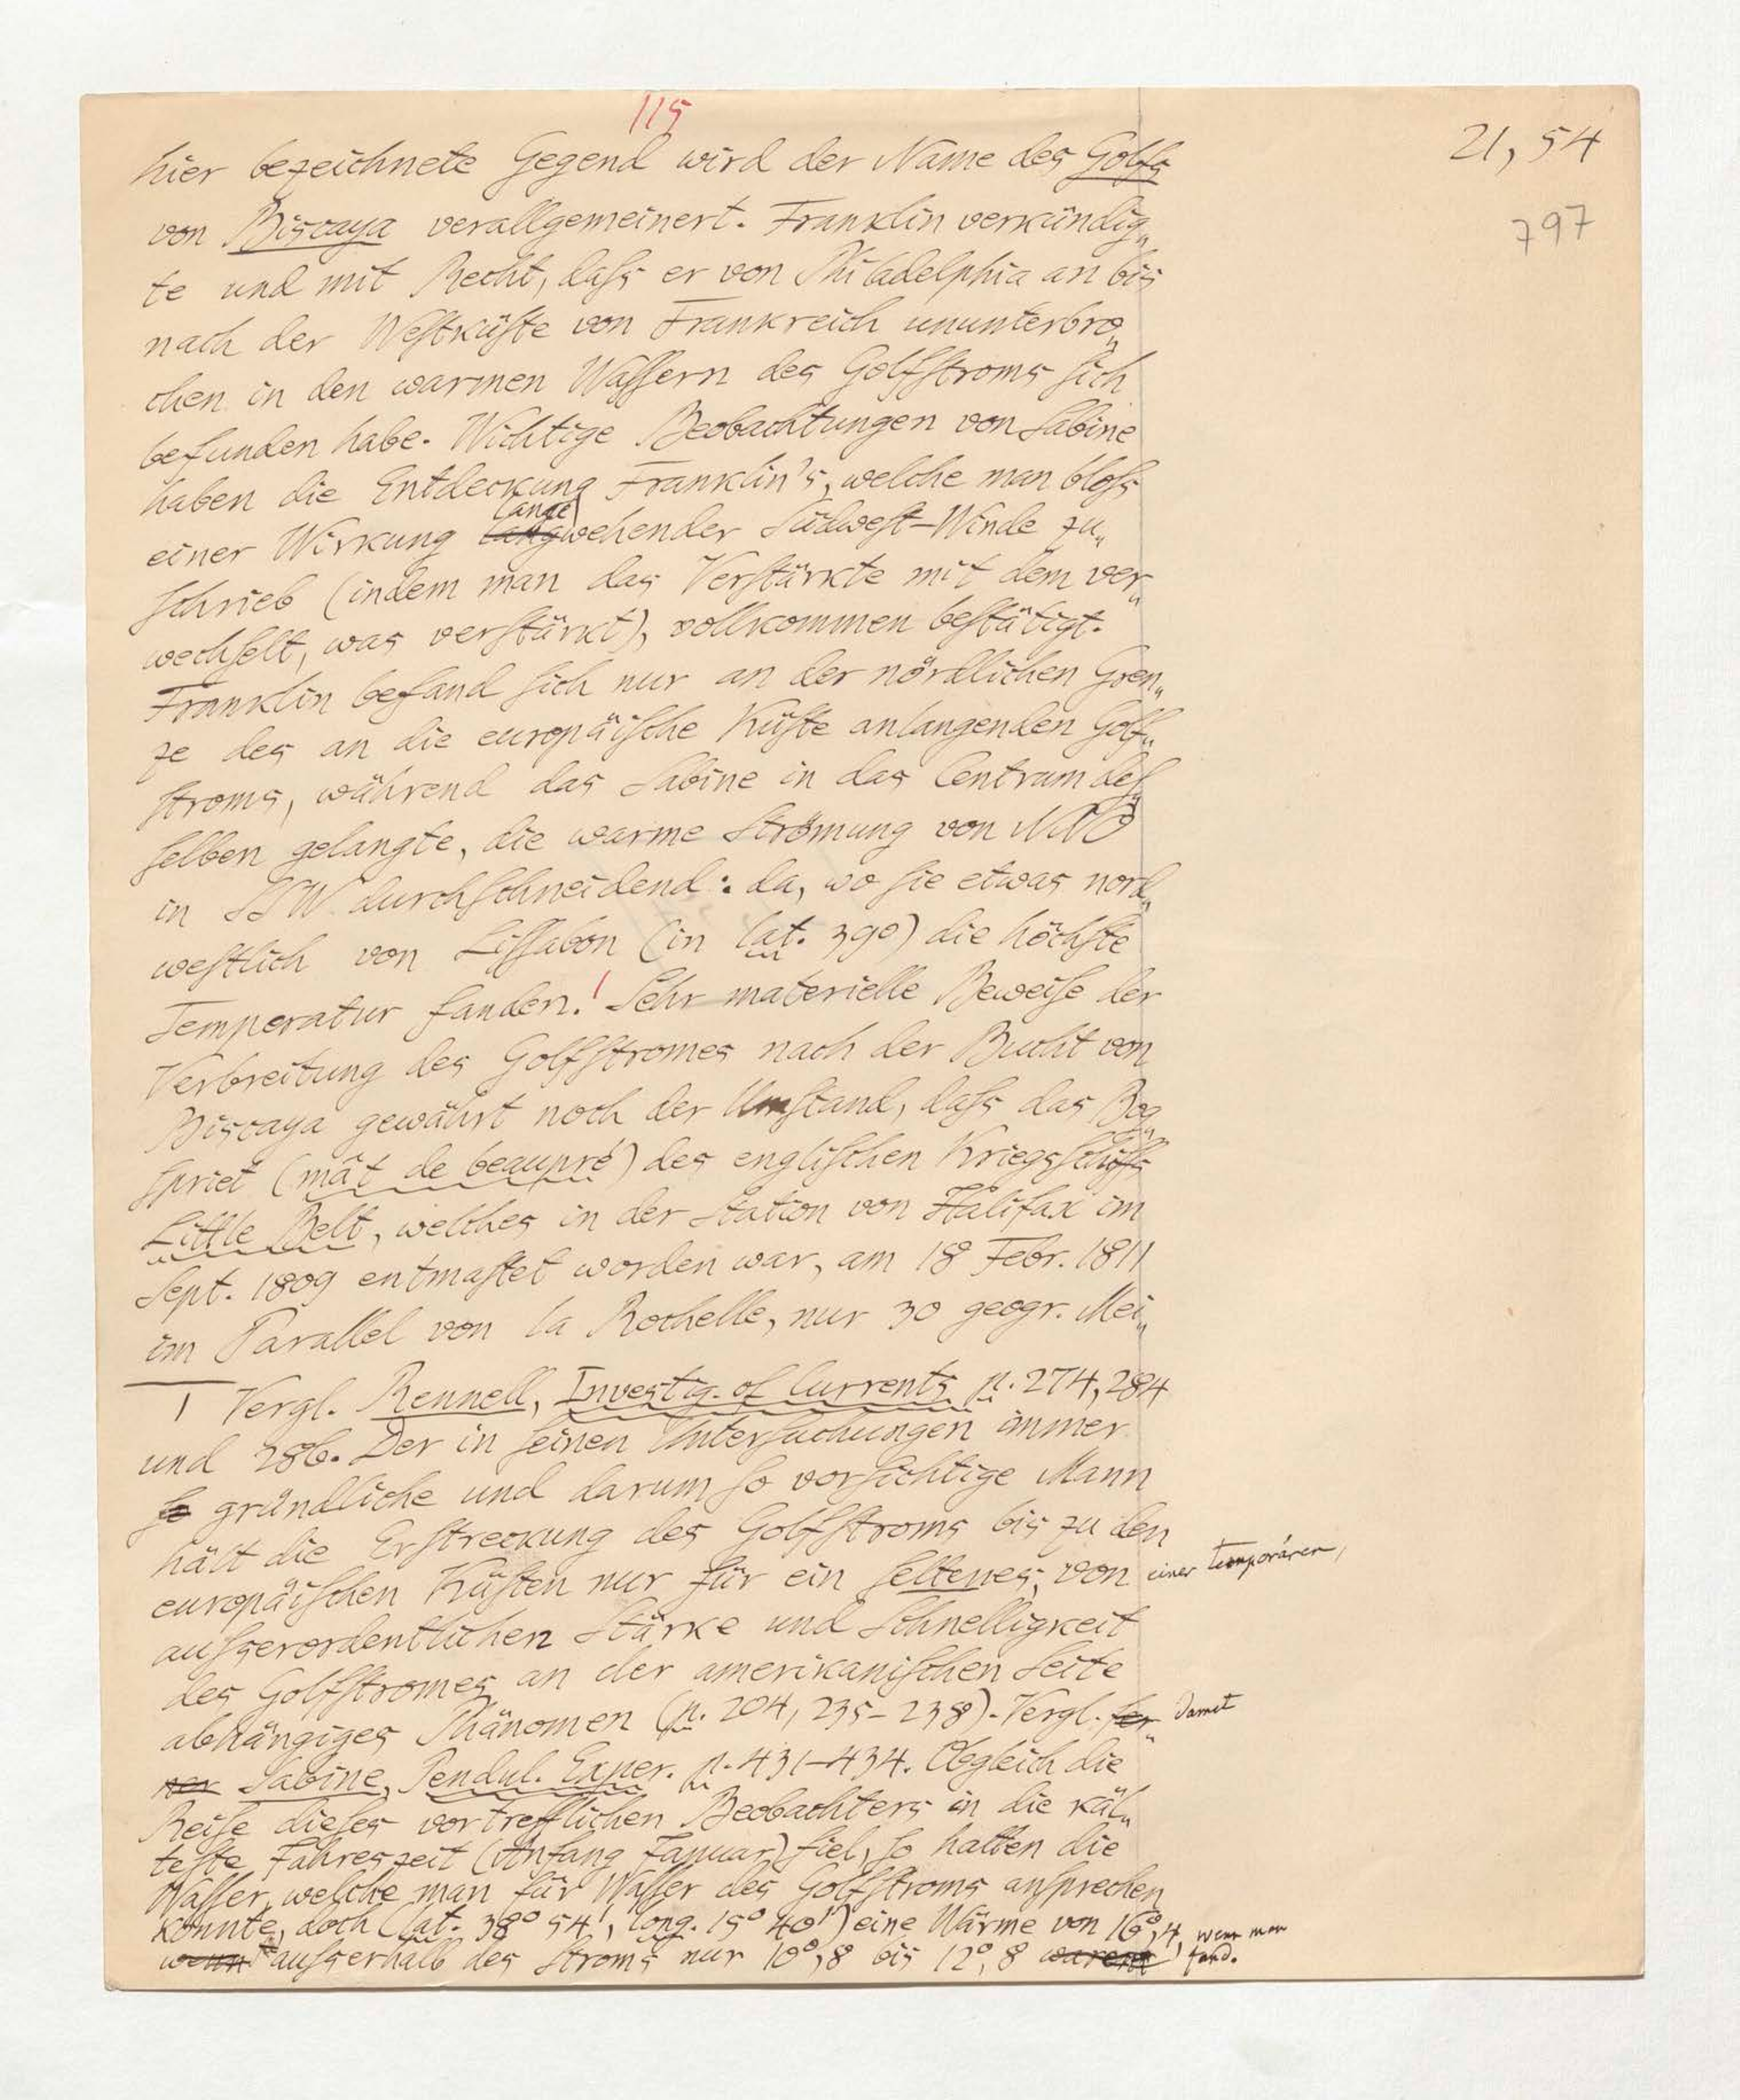 115
21, 54
797
hier bezeichnete Gegend wird der Name des Golfs
von Biscaya verallgemeinert. Franklin verkündig„
te und mit Recht, daſs er von Philadelphia an bis
nach der Weſtküſte von Frankreich ununterbro„
chen in den warmen Waſſern des Golfſtroms ſich
befunden habe. Wichtige Beobachtungen von Sabine
haben die Entdeckung Franklin's, welche man bloſs
lange
einer Wirkung lang wehender Südweſt-Winde zu„
ſchrieb (indem man das Verſtärkte mit dem ver„
wechſelt, was verſtärkt), vollkommen beſtätigt.
Franklin befand ſich nur an der nördlichen Gren„
ze des an die europäiſche Küſte anlangenden Golf„
ſtroms, während das Sabine in das Centrum deſ„
ſelben gelangte, die warme Strömung von NNO
in SSW durchſchneidend: da, wo ſie etwas nord„
weſtlich von Liſſabon (in lat. 39º) die höchſte
Temperatur fanden.¹ Sehr materielle Beweiſe der
Verbreitung des Golfſtromes nach der Bucht von
Biscaya gewährt noch der Umſtand, daſs das Bog„
ſpriet (mât de beaupré) des engliſchen Kriegsſchiffs
Little Belt, welches in der Station von Halifax im
Sept. 1809 entmaſtet worden war, am 18 Febr. 1811
im Parallel von la Rochelle, nur 30 geogr. Mei„
1 Vergl. Rennell, Investig. of Currents p. 274, 284
und 286. Der in ſeinen Unterſuchungen immer
ſo gründliche und darum ſo vorſichtige Mann
hält die Erſtreckung des Golfſtroms bis zu den
europäiſchen Küſten nur für ein ſeltenes, von einer temporären,
auſserordentlichen Stärke und Schnelligkeit
des Golfſtromes an der amerikaniſchen Seite
abhängiges Phänomen (p. 204, 235–238). Vergl. fer„ damit
ner Sabine, Pendul. Exper. p. 431–434. Obgleich die
Reiſe dieſes vortrefflichen Beobachters in die käl„
teſte Jahreszeit (Anfang Januar) fiel, ſo hatten die
Waſſer, welche man für Waſſer des Golfſtroms anſprechen
konnte, doch (lat. 38° 54', long. 15° 40') eine Wärme von 16°,4, wenn man
wenn auſserhalb des Stroms nur 10°,8 bis 12°,8 waren fand.